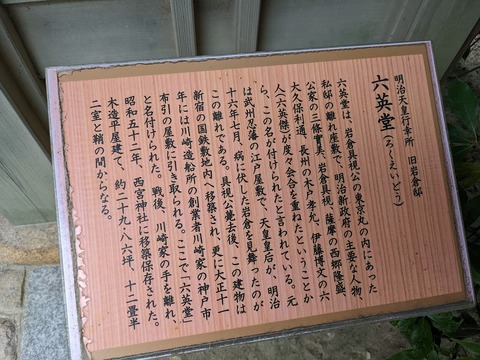 明治天皇行幸所 旧岩倉邸
六英堂(ろくえいどう)
六英堂は、岩倉具視公の東京丸の内にあった
私邸の離れ座敷で、明治新政府の主要な人物、
公家の三條實美、岩倉具視、薩摩の西郷隆盛、
大久保利通、長州の木戸孝允、伊藤博文の六
人(六英傑)が度々会合を重ねたということか
ら、この名が付けられたと言われている。元
は武州忍藩の江戸屋敷で、天皇皇后が、明治
十六年七月、病に伏した岩倉を見舞ったのが
この離れである。具視公薨去後、この建物は
新宿の国鉄敷地内へ移築され、更に大正十一
年には川崎造船所の創業者川崎家の神戸市
布引の屋敷に引き取られる。ここで「六英堂」
と名付けられた。戦後、川崎家の手を離れ、
昭和五十二年、西宮神社に移築保存された。
木造平屋建て、約二十九・八六坪、十二畳半
二室と鞘の間からなる。